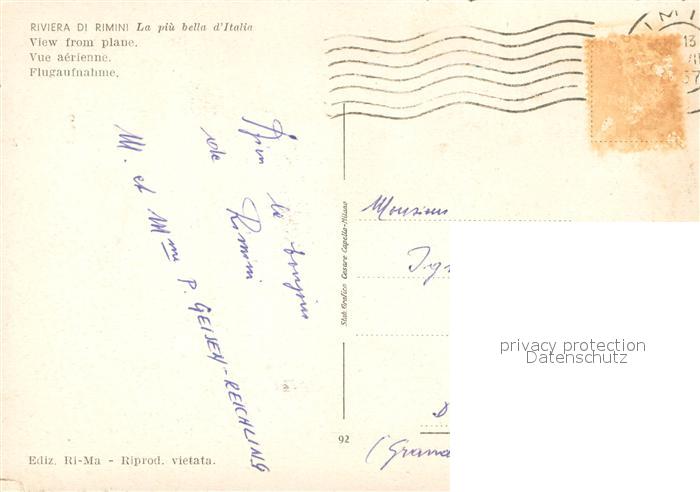 RIVIERA DI RIMINI La più bella d'Italia
View from plane.
Vue aérienne.
Flugaufnahme.
de Rimini
M. et Mme P. GEISEN-REICHLING
Ediz. Ri-Ma - Riprod. vietata.
Stab. Grafico Cesare Capello-Milano
92
13
Monsieur
D
privacy protection
Datenschutz